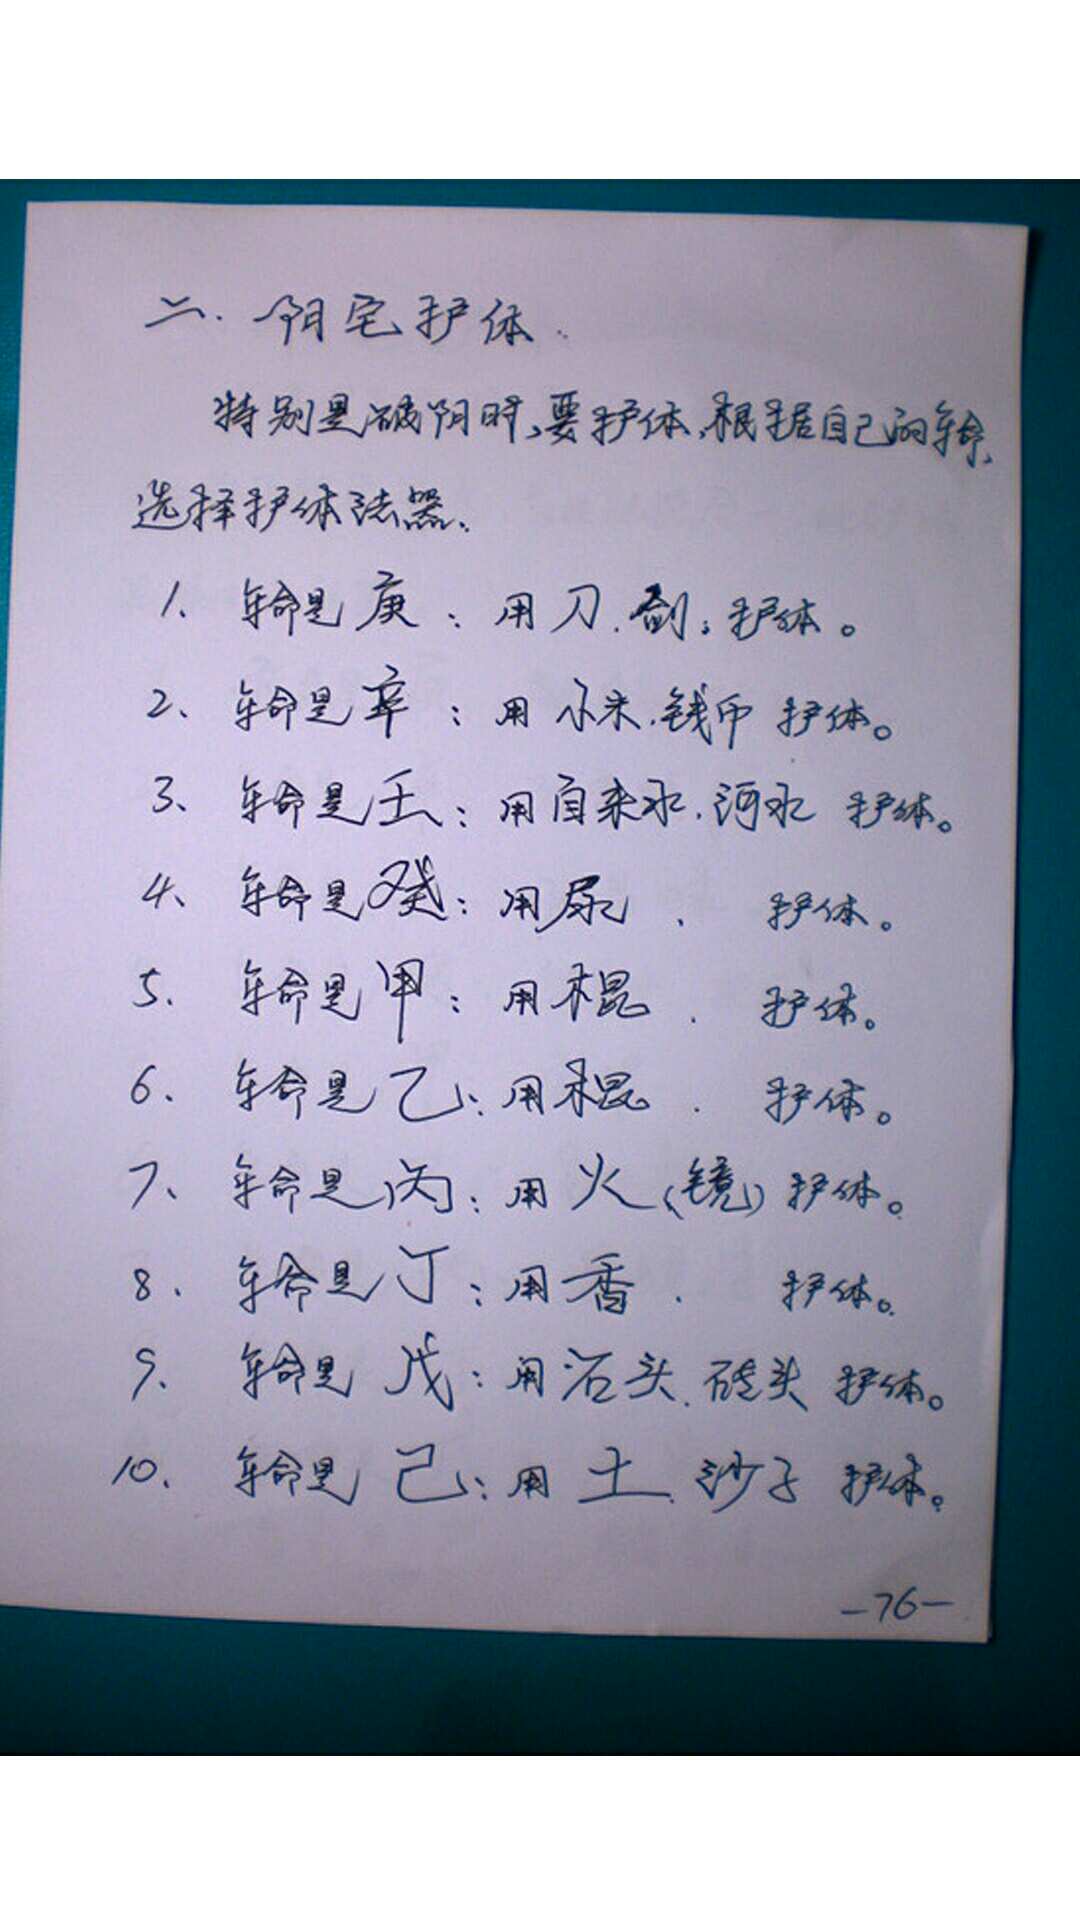 二. 阳宅护体.
特别是破阴时,要护体,根据自己的年命,
选择护体法器.
1、年命是庚:用刀.剑;护体。
2、年命是辛:用小米.钱币 护体。
3、年命是壬:用自来水.河水 护体。
4、年命是癸:用尿. 护体。
5、年命是甲:用棍. 护体。
6、年命是乙:用棍. 护体。
7、年命是丙:用火(镜)护体。
8、年命是丁:用香. 护体。
9、年命是戊:用石头.砖头 护体。
10、年命是己:用土.沙子 护体。
—76—